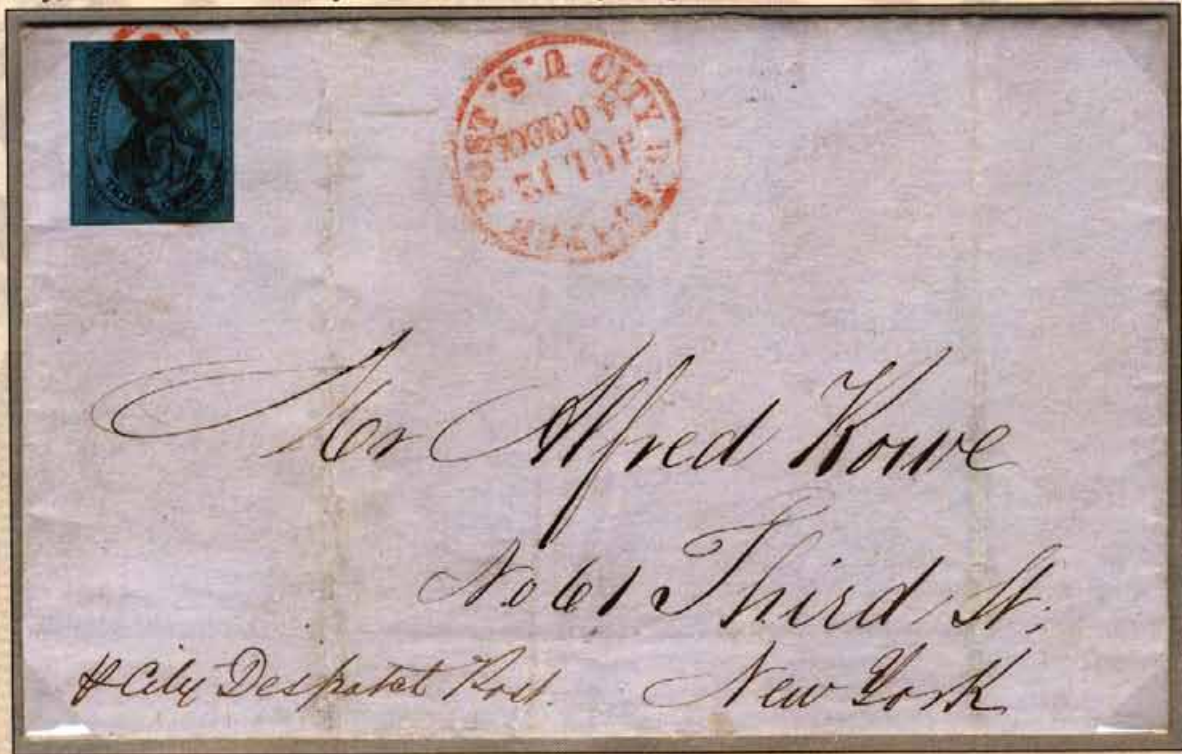 U.S. CITY DESPATCH POST
O'CLOCK
JUL
Mr Alfred Rowe
No 61 Third St.
New York
P City Despatch Post.